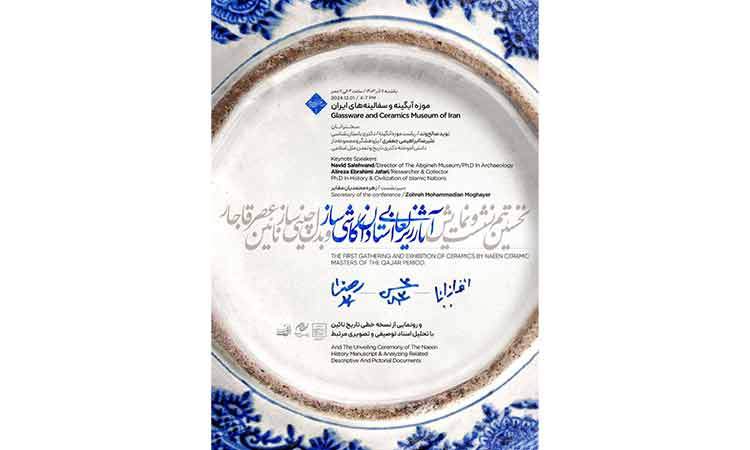 یکشنبه ۱۱ آذر ۱۴۰۳ / ساعت ۴ الی ۷ عصر
2024.12.01 / 4-7 PM
موزه آبگینه و سفالینه‌های ایران
Glassware and Ceramics Museum of Iran
سخنرانان
نوید صالح‌وند / ریاست موزه آبگینه / دکتری باستان‌شناسی
علیرضا ابراهیمی جعفری / پژوهشگر و مجموعه‌دار
دانش‌آموخته دکتری تاریخ و تمدن ملل اسلامی
Keynote Speakers
Navid Salehvand/Director of The Abgineh Museum/Ph.D In Archaeology
Alireza Ebrahimi Jafari/Researcher & Collector
Ph.D In History & Civilization of Islamic Nations
سرپرست / زهره محمدیان مغایر
Secretary of the conference / Zohreh Mohammadian Moghayer
نخستین نشست و نمایش آثار زیرلعابی استادان کاشی‌ساز و بدل چینی‌ساز نائین عصر قاجار
THE FIRST GATHERING AND EXHIBITION OF CERAMICS BY NAEEN CERAMIC
MASTERS OF THE QAJAR PERIOD.
و رونمایی از نسخه خطی تاریخ نائین
با تحلیل اسناد توصیفی و تصویری مرتبط
And The Unveiling Ceremony of The Naeen
History Manuscript & Analyzing Related
Descriptive And Pictorial Documents